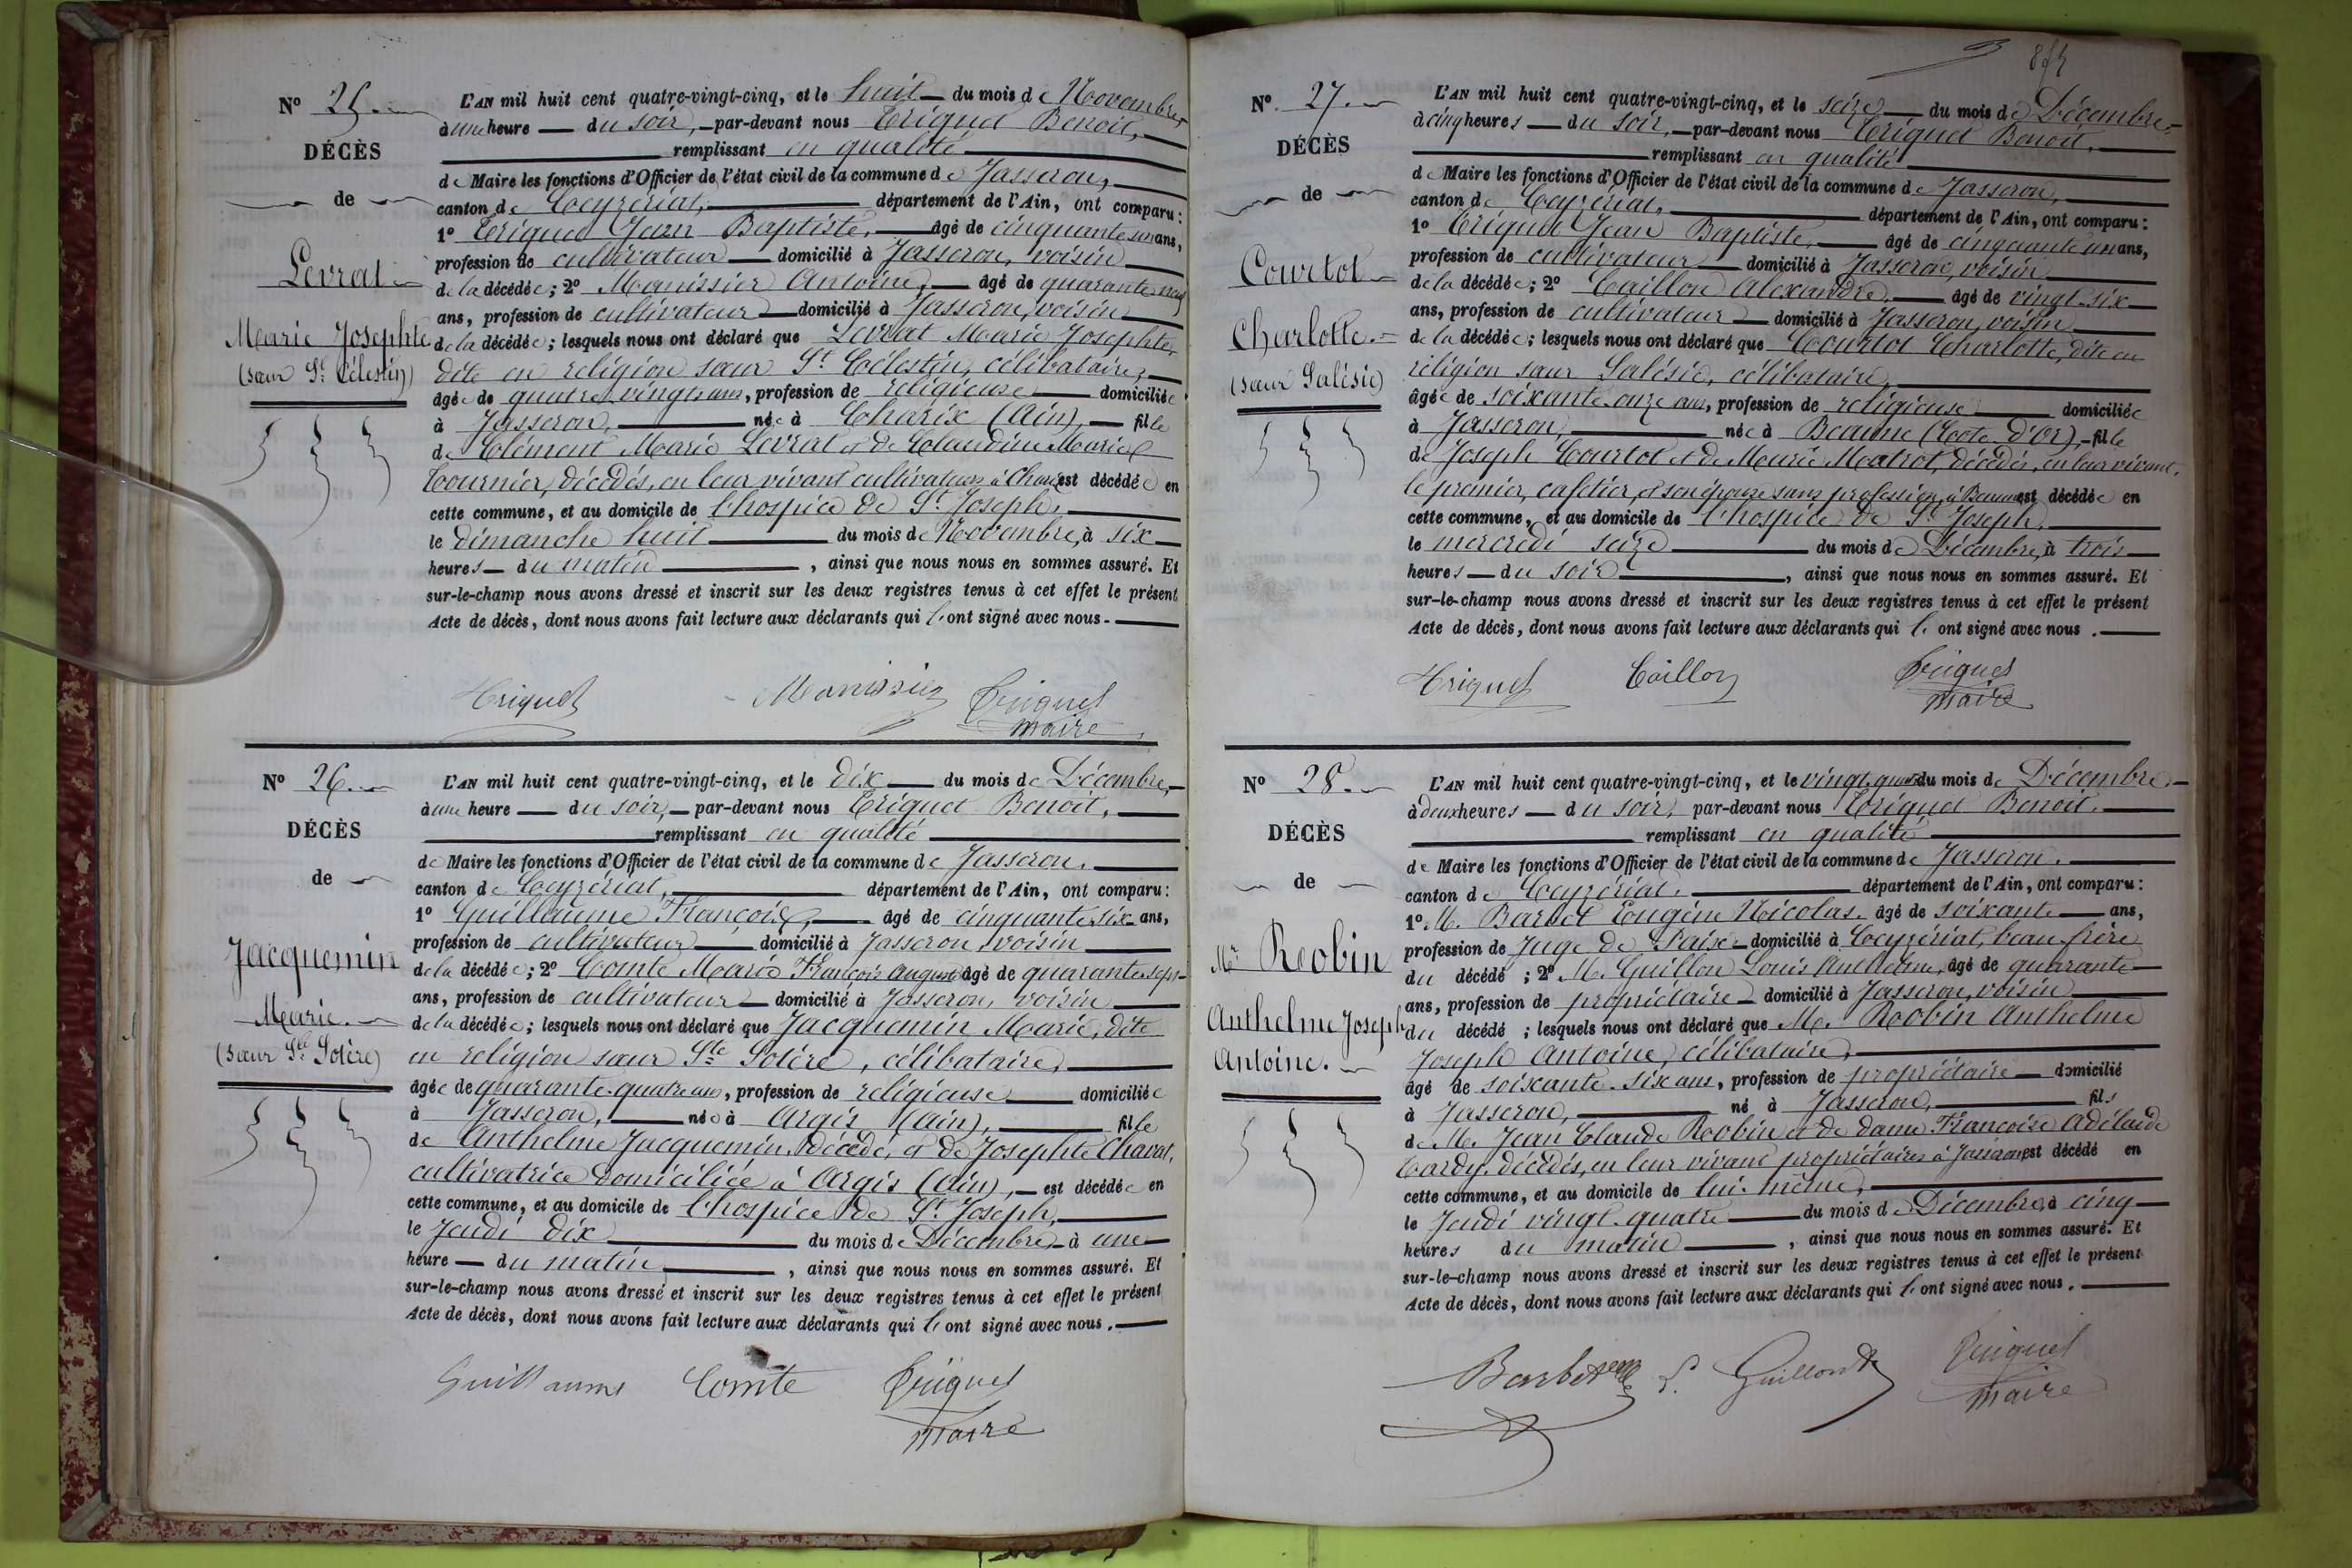 Nº 25.
DÉCÈS
de
Levrat
Marie Josephte
(sœur St Célestin)
L'AN mil huit cent quatre-vingt-cinq, et le huit du mois de Novembre,
à une heure du soir, par-devant nous Triquet Benoit,
remplissant en qualité
de Maire les fonctions d'Officier de l'état civil de la commune de Jasseron,
canton de Ceyzériat, département de l'Ain, ont comparu:
1º Triquet Jean Baptiste, âgé de cinquante un ans,
profession de cultivateur domicilié à Jasseron, voisin
de la décédée; 2º Manissier Antoine, âgé de quarante neuf
ans, profession de cultivateur domicilié à Jasseron, voisin
de la décédée; lesquels nous ont déclaré que Levrat Marie Josephte,
dite en religion sœur St Célestin, célibataire,
âgée de quatre-vingts ans, profession de religieuse domiciliée
à Jasseron, née à Charix (Ain), fille
de Clément Marie Levrat et de Claudine Marie
Tournier, décédés, en leur vivant cultivateurs à Charix est décédée en
cette commune, et au domicile de l'hospice de St Joseph,
le dimanche huit du mois de Novembre, à six
heures du matin, ainsi que nous nous en sommes assuré. Et
sur-le-champ nous avons dressé et inscrit sur les deux registres tenus à cet effet le présent
Acte de décès, dont nous avons fait lecture aux déclarants qui l'ont signé avec nous.
Triquet Manissier Triquet
maire
Nº 26.
DÉCÈS
de
Jacquemin
Marie.
(sœur Ste Sotère)
L'AN mil huit cent quatre-vingt-cinq, et le dix du mois de Décembre,
à une heure du soir, par-devant nous Triquet Benoit,
remplissant en qualité
de Maire les fonctions d'Officier de l'état civil de la commune de Jasseron.
canton de Ceyzériat, département de l'Ain, ont comparu:
1º Guillaume François, âgé de cinquante-six ans,
profession de cultivateur domicilié à Jasseron, voisin
de la décédée; 2º Comte Marie François Auguste âgé de quarante-sept
ans, profession de cultivateur domicilié à Jasseron, voisin
de la décédée; lesquels nous ont déclaré que Jacquemin Marie, dite
en religion sœur Ste Sotère, célibataire,
âgée de quarante-quatre ans, profession de religieuse domiciliée
à Jasseron, née à Argis (Ain), fille
de Anthelme Jacquemin, décédé, et de Josephte Chavat,
cultivatrice domiciliée à Argis (Ain), est décédée en
cette commune, et au domicile de l'hospice de St Joseph,
le Jeudi dix du mois de Décembre, à une
heure du matin, ainsi que nous nous en sommes assuré. Et
sur-le-champ nous avons dressé et inscrit sur les deux registres tenus à cet effet le présent
Acte de décès, dont nous avons fait lecture aux déclarants qui l'ont signé avec nous.
Guillaume Comte Triquet
maire
Nº 27.
DÉCÈS
de
Courtot
Charlotte.
(sœur Salésie)
L'AN mil huit cent quatre-vingt-cinq, et le seize du mois de Décembre,
à cinq heures du soir, par-devant nous Triquet Benoit,
remplissant en qualité
de Maire les fonctions d'Officier de l'état civil de la commune de Jasseron,
canton de Ceyzériat, département de l'Ain, ont comparu:
1º Triquet Jean Baptiste, âgé de cinquante un ans,
profession de cultivateur domicilié à Jasseron, voisin
de la décédée; 2º Caillon Alexandre, âgé de vingt-six
ans, profession de cultivateur domicilié à Jasseron, voisin
de la décédée; lesquels nous ont déclaré que Courtot Charlotte, dite en
religion sœur Salésie, célibataire,
âgée de soixante-onze ans, profession de religieuse domiciliée
à Jasseron, née à Beaune (Côte-d'Or), fille
de Joseph Courtot et de Marie Matrot, décédés, en leur vivant,
le premier, cafetier, et son épouse sans profession, à Beaune est décédée en
cette commune, et au domicile de l'hospice de St Joseph,
le mercredi seize du mois de Décembre, à trois
heures du soir, ainsi que nous nous en sommes assuré. Et
sur-le-champ nous avons dressé et inscrit sur les deux registres tenus à cet effet le présent
Acte de décès, dont nous avons fait lecture aux déclarants qui l'ont signé avec nous.
Triquet Caillon Triquet
maire
Nº 28.
DÉCÈS
de
Mr Robin
Anthelme Joseph
Antoine.
L'AN mil huit cent quatre-vingt-cinq, et le vingt-quatre du mois de Décembre,
à deux heures du soir, par-devant nous Triquet Benoit.
remplissant en qualité
de Maire les fonctions d'Officier de l'état civil de la commune de Jasseron.
canton de Ceyzériat. département de l'Ain, ont comparu:
1º M. Barbet Eugène Nicolas. âgé de soixante ans,
profession de Juge de Paix domicilié à Ceyzériat, beau-frère
du décédé; 2º M. Guillon Louis Anthelme, âgé de quarante
ans, profession de propriétaire domicilié à Jasseron, voisin
du décédé; lesquels nous ont déclaré que M. Robin Anthelme
Joseph Antoine, célibataire,
âgé de soixante-six ans, profession de propriétaire domicilié
à Jasseron, né à Jasseron, fils
de M. Jean Claude Robin et de dame Françoise Adélaïde
Tardy, décédés, en leur vivant propriétaires à Jasseron est décédé en
cette commune, et au domicile de lui-même,
le Jeudi vingt-quatre du mois de Décembre, à cinq
heures du matin, ainsi que nous nous en sommes assuré. Et
sur-le-champ nous avons dressé et inscrit sur les deux registres tenus à cet effet le présent
Acte de décès, dont nous avons fait lecture aux déclarants qui l'ont signé avec nous.
Barbet L. Guillon Triquet
maire